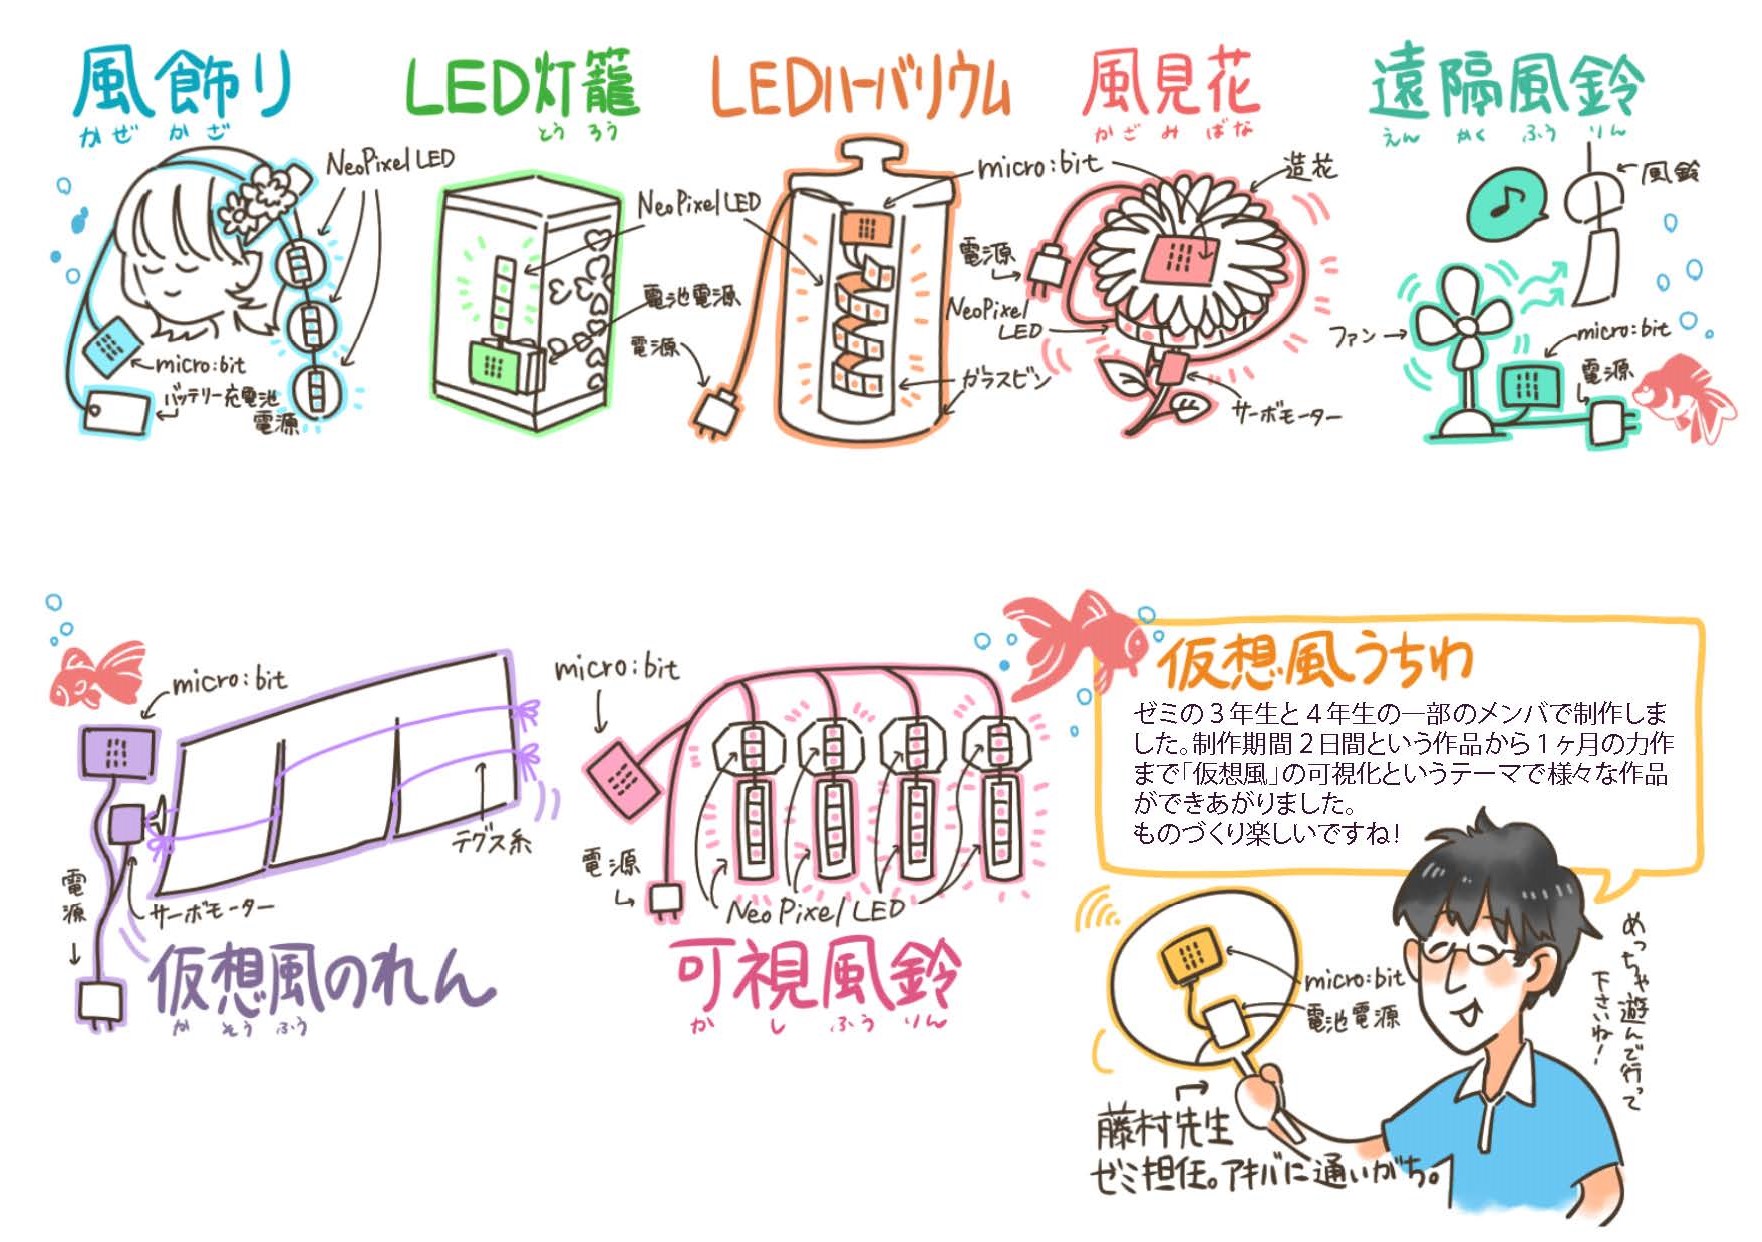 風飾り
かぜかざ
NeoPixel LED
micro:bit
バッテリー充電池
電源
LED灯籠
とうろう
NeoPixel LED
電池電源
LEDハーバリウム
micro:bit
電源
ガラスビン
風見花
かざみばな
造花
電源
NeoPixel
LED
サーボモーター
遠隔風鈴
えんかくふうりん
風鈴
ファン
micro:bit
電源
micro:bit
テグス糸
サーボモーター
電源
仮想風のれん
かそうふう
micro:bit
電源
NeoPixel LED
可視風鈴
かしふうりん
仮想風うちわ
ゼミの3年生と4年生の一部のメンバで制作しま
した。制作期間2日間という作品から1ヶ月の力作
まで「仮想風」の可視化というテーマで様々な作品
ができあがりました。
ものづくり楽しいですね!
めっちゃ遊んで行って
下さいね!
micro:bit
電池電源
藤村先生
ゼミ担任。アキバに通いがち。